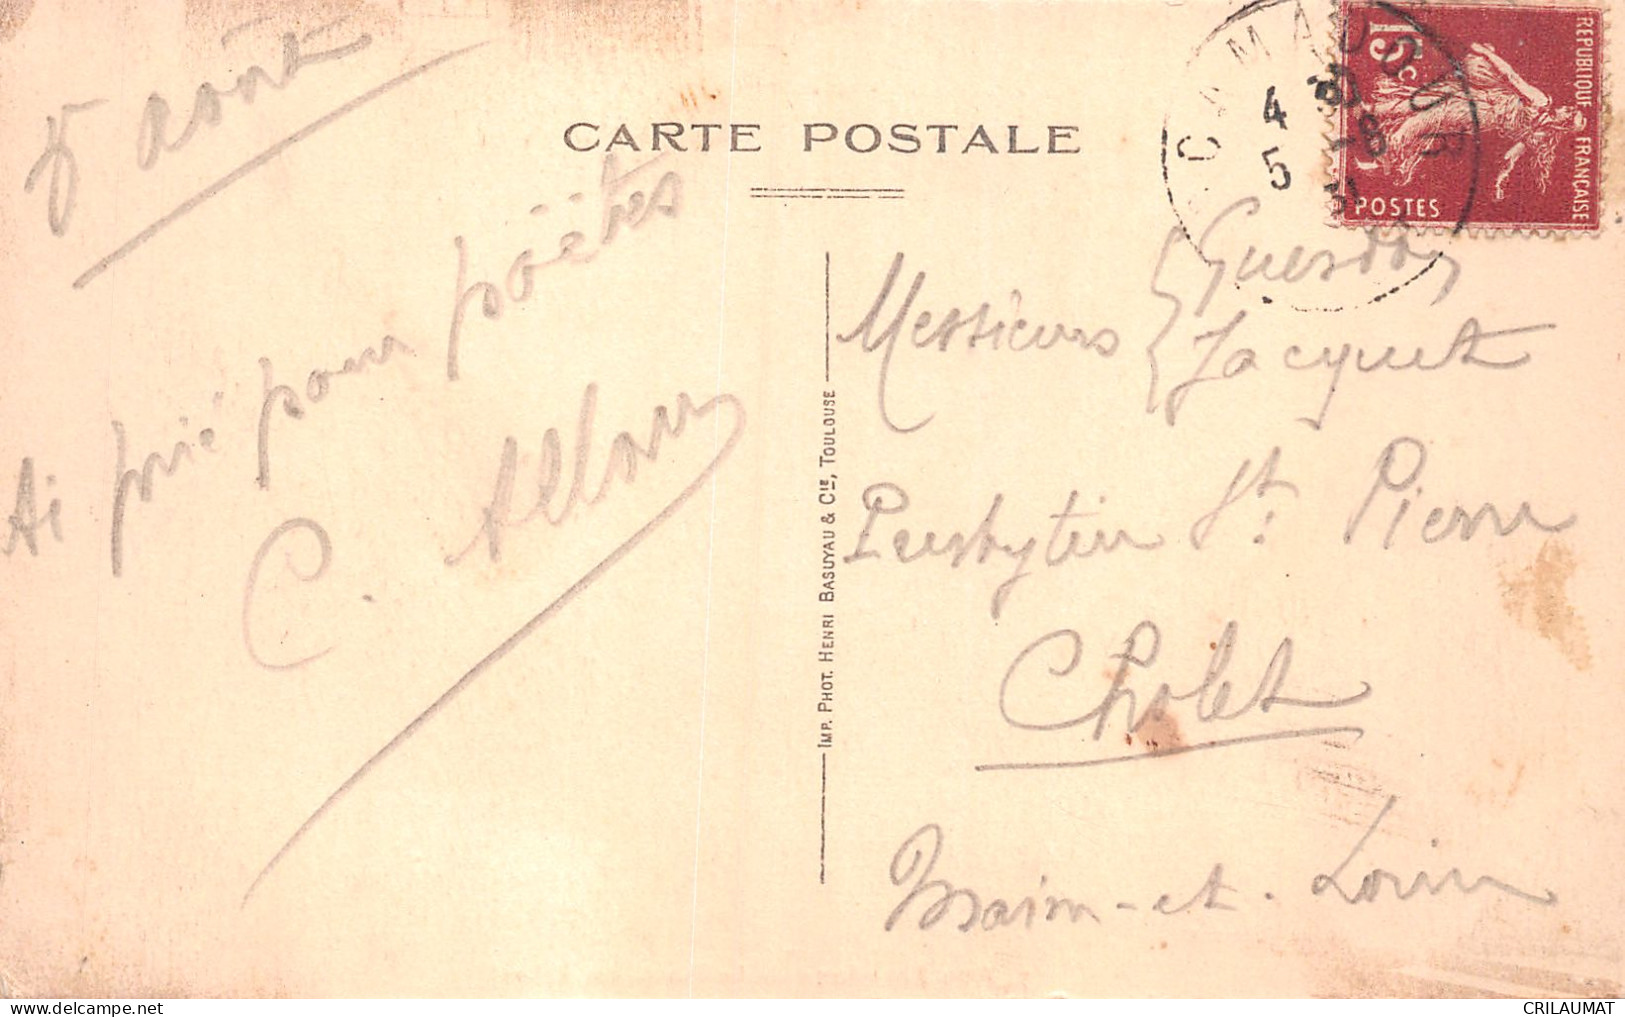 5 août
CARTE POSTALE
Ai prié pour poètes
C. Allary
IMP. PHOT. HENRI BASUYAU & CIE, TOULOUSE
15c
REPUBLIQUE FRANÇAISE
POSTES
OCAMADOUR
4
5 -8
Messieurs
Jacquet
Presbytère St. Pierre
Cholet
Maine-et-Loire
CRILAUMAT